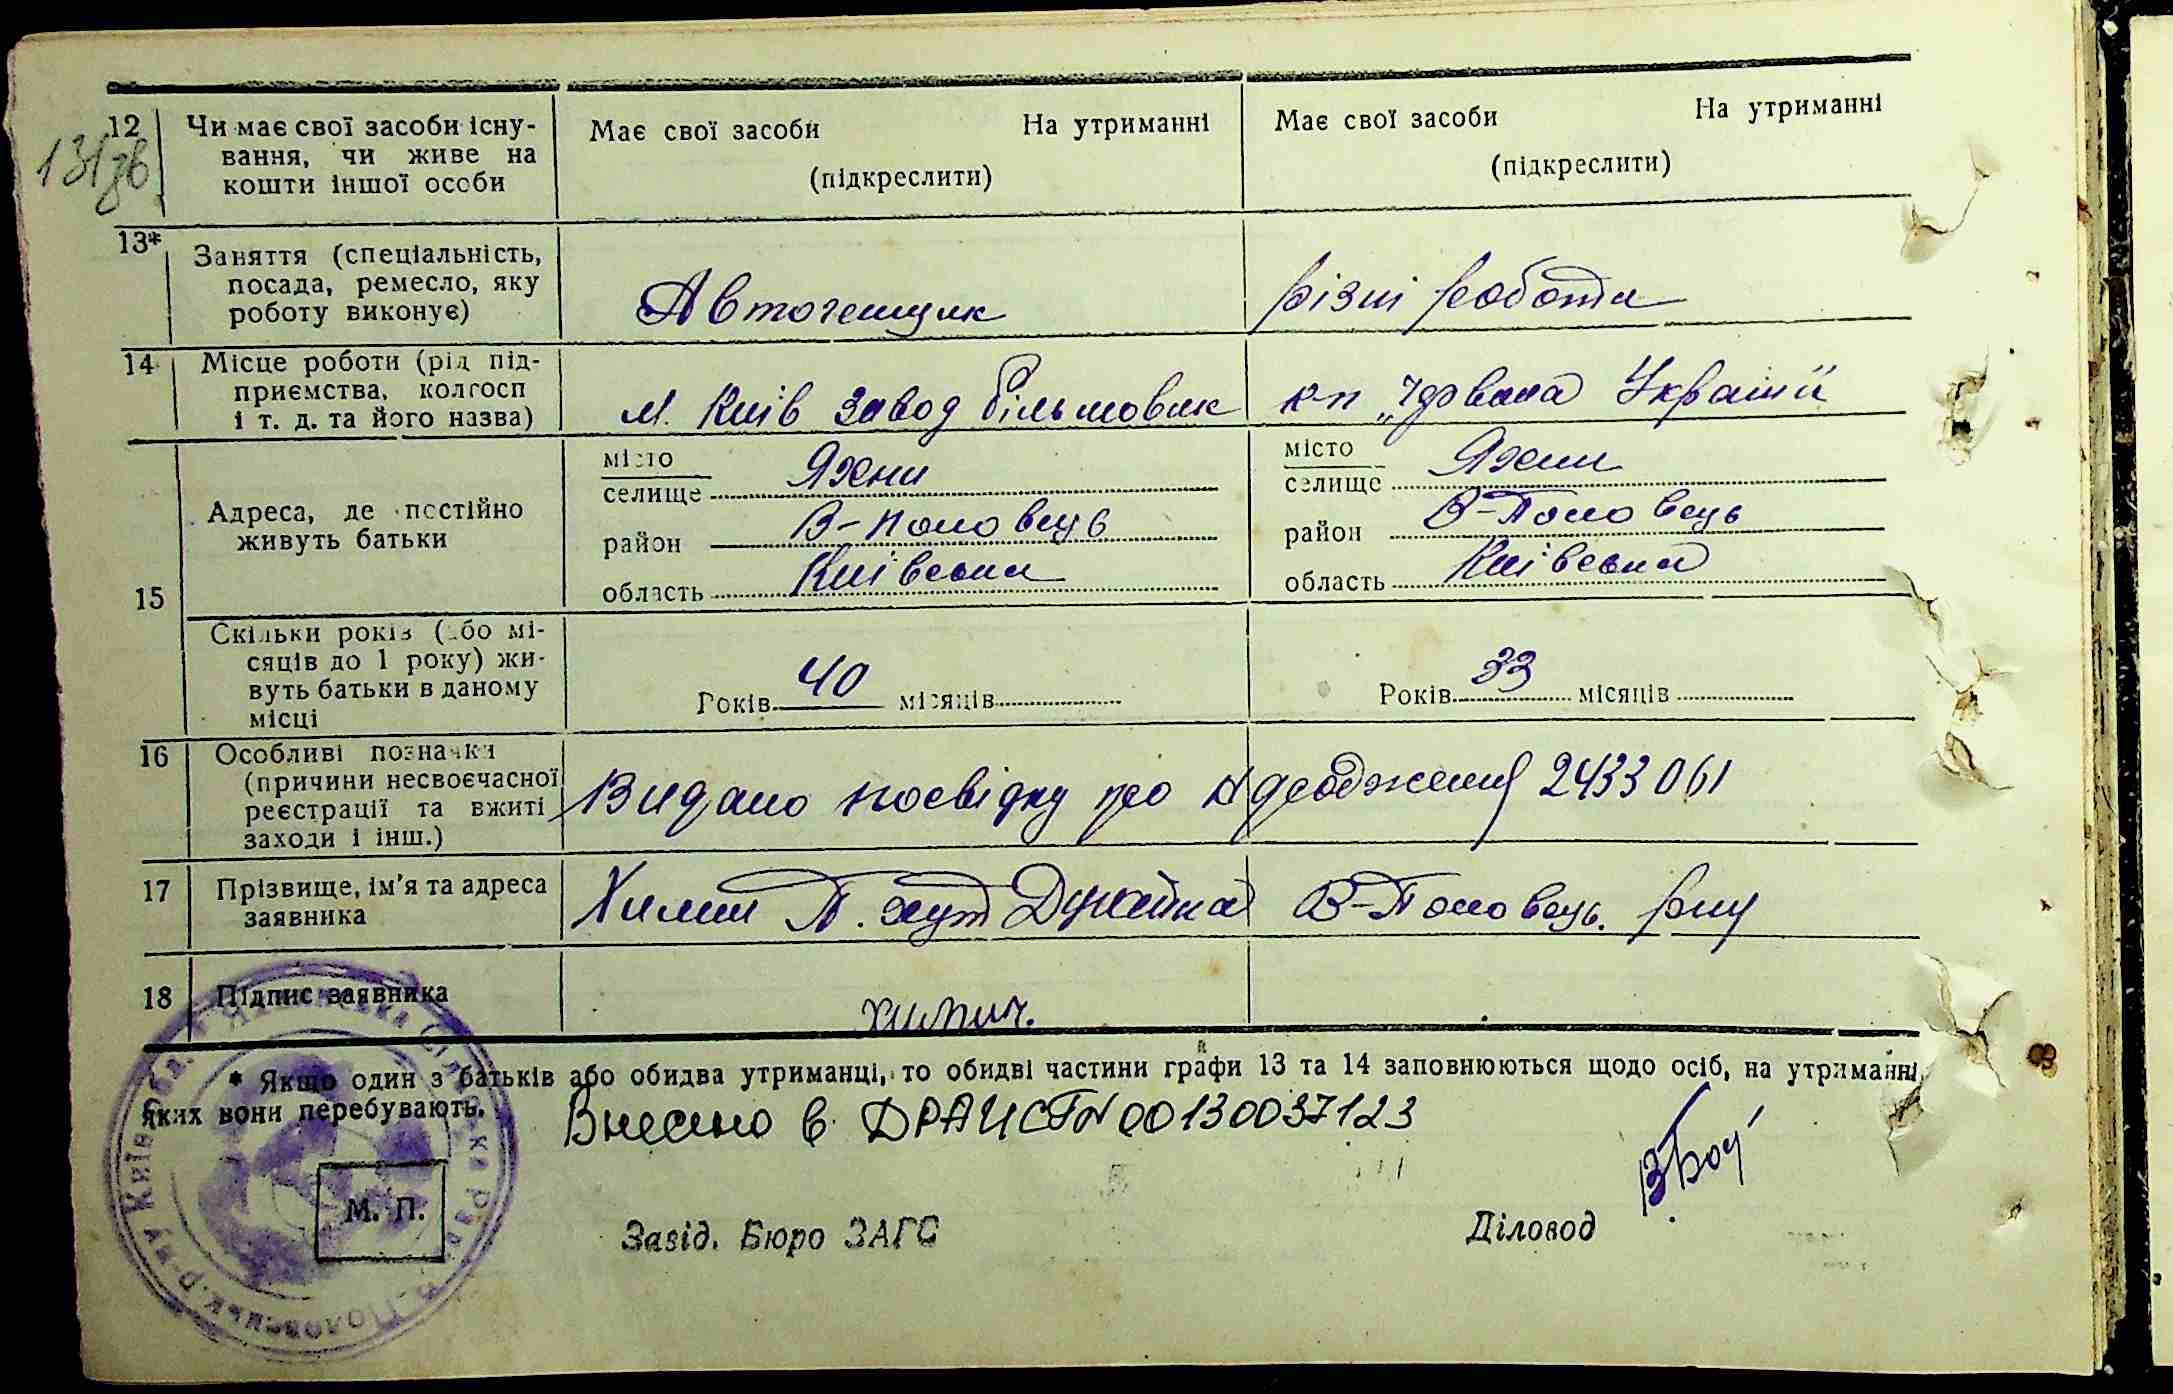 131зв
12 Чи має свої засоби існу- Має свої засоби На утриманні Має свої засоби На утриманні
вання, чи живе на (підкреслити) (підкреслити)
кошти іншої особи
13* Заняття (спеціальність,
посада, ремесло, яку Автогенщик різні роботи
роботу виконує)
14 Місце роботи (рід під-
приємства, колгосп м. Київ завод Більшовик к-п „Червона Україна"
і т. д. та його назва)
15 Адреса, де постійно
живуть батьки
місто Яхни місто Яхни
селище селище
район В-Половець район В-Половець
область Київська область Київська
Скільки років (або мі-
сяців до 1 року) жи-
вуть батьки в даному Років 40 місяців Років 33 місяців
місці
16 Особливі позначки
(причини несвоєчасної Видано посвідку про народження 2433061
реєстрації та вжиті
заходи і інш.)
17 Прізвище, ім'я та адреса Химич П. хут В-Половець. р-ну
заявника
18 Підпис заявника Химич.
* Якщо один з батьків або обидва утриманці, то обидві частини графи 13 та 14 заповнюються щодо осіб, на утриманні
яких вони перебувають.
Внесено в ДРАЦСГN 00130037123
М. П.
Завід. Бюро ЗАГС Діловод